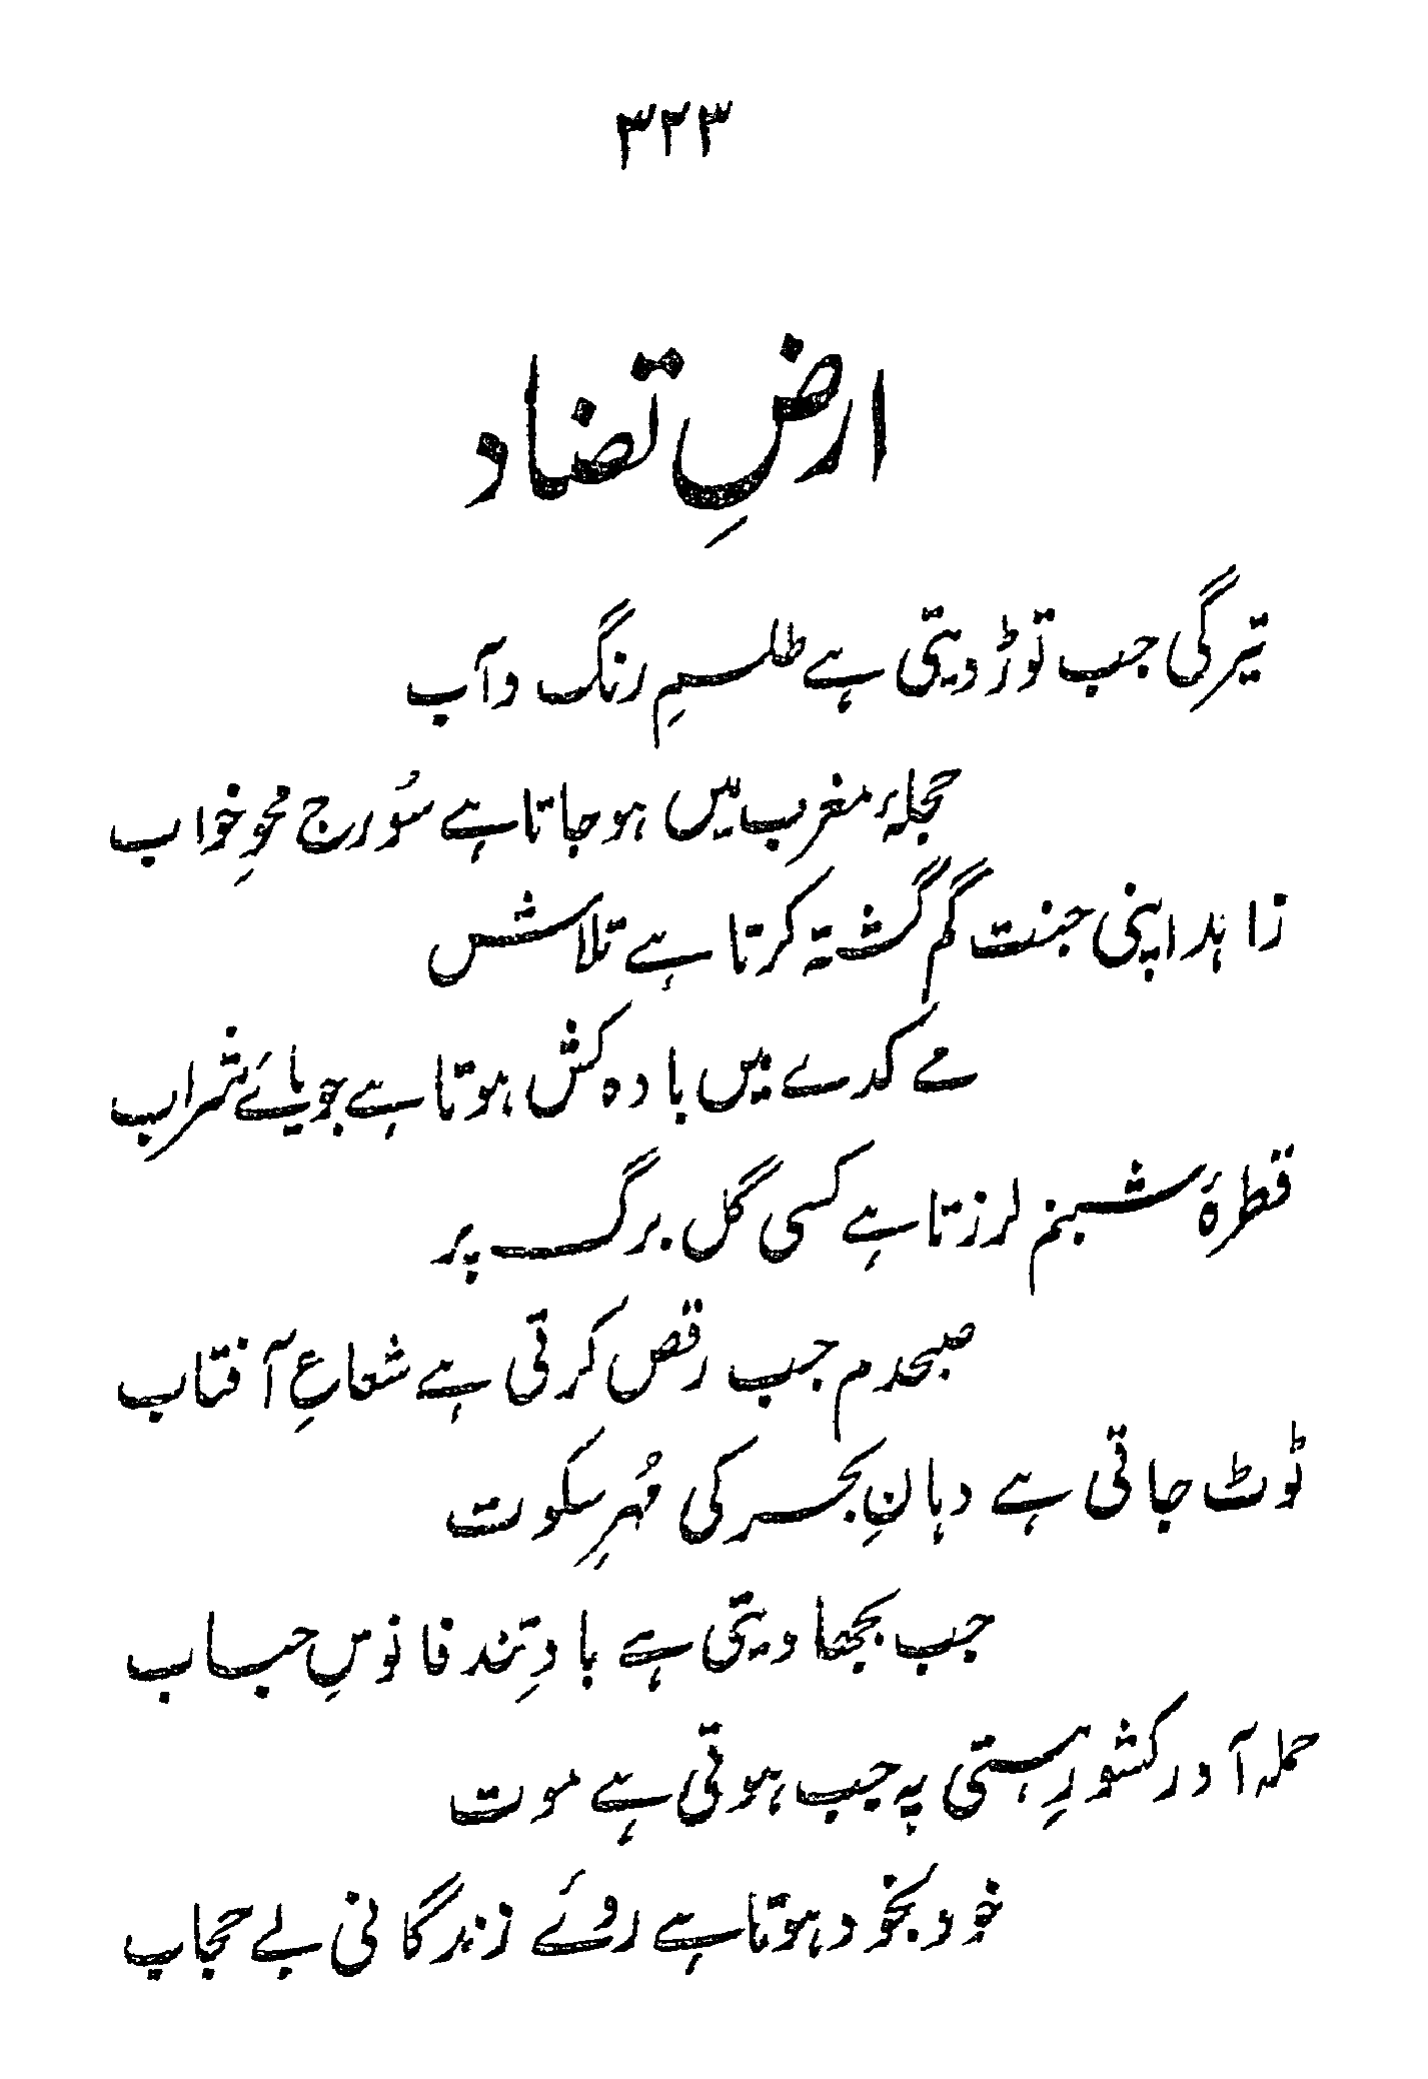 ۳۲۳
ارضِ تضاد
تیرگی جب توڑ دیتی ہے طلسمِ رنگ و آب
حجلہء مغرب میں ہو جاتا ہے سُورج محوِ خواب
زاہد اپنی جنت گم گشتہ کرتا ہے تلاش
مے کدے میں بادہ کش ہوتا ہے جویائے شراب
قطرۂ شبنم لرزتا ہے کسی گل برگ پر
صبحدم جب رقص کرتی ہے شعاعِ آفتاب
ٹوٹ جاتی ہے دہانِ بحر کی مُہرِ سکوت
جب بجھا دیتی ہے بادِ تند فانوسِ حباب
حملہ آور کشورِ ہستی پہ جب ہوتی ہے موت
خود بخود ہوتا ہے روئے زندگانی بے حجاب